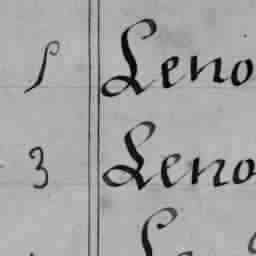 1 Leno
3 Leno